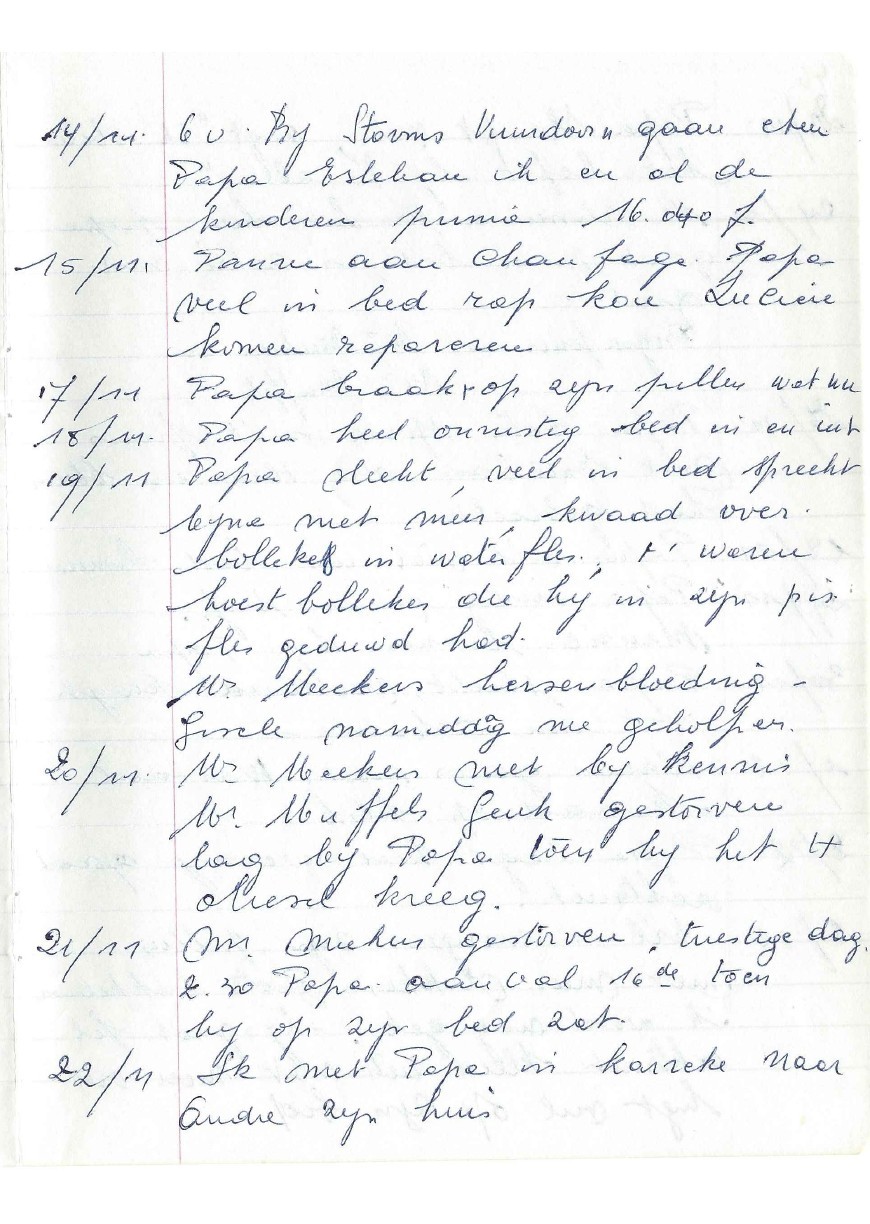 14/11. 6 u. By Storms Vuurdoorn gaan eten
Papa Esteban ik en al de
kinderen prumie 16.040 f.
15/11. Panne aan Chaufage. Papa
veel in bed rap kou Lucien
komen repareren
17/11 Papa braakt op zijn pillen wat nu
18/11. Papa heel onrustig bed in en uit
19/11 Papa slecht, veel in bed sprecht
byna niet meer, kwaad over
bollekes in water fles, t' waren
hoest bollekes die hij in zijn pis
fles geduwd had.
Mr. Meekers hersenbloeding -
Gisele namiddag me geholpen.
20/11. Mr Meekers niet by kennis
Mr. Muffels Genk gestorven
lag by Papa toen hy het
kreeg.
21/11 Mr. Meekers gestorven, tuestige dag.
2.30 Papa aanval 16de toen
hy op zijn bed zat.
22/11 Ik met Papa in karreke naar
Andre zijn huis